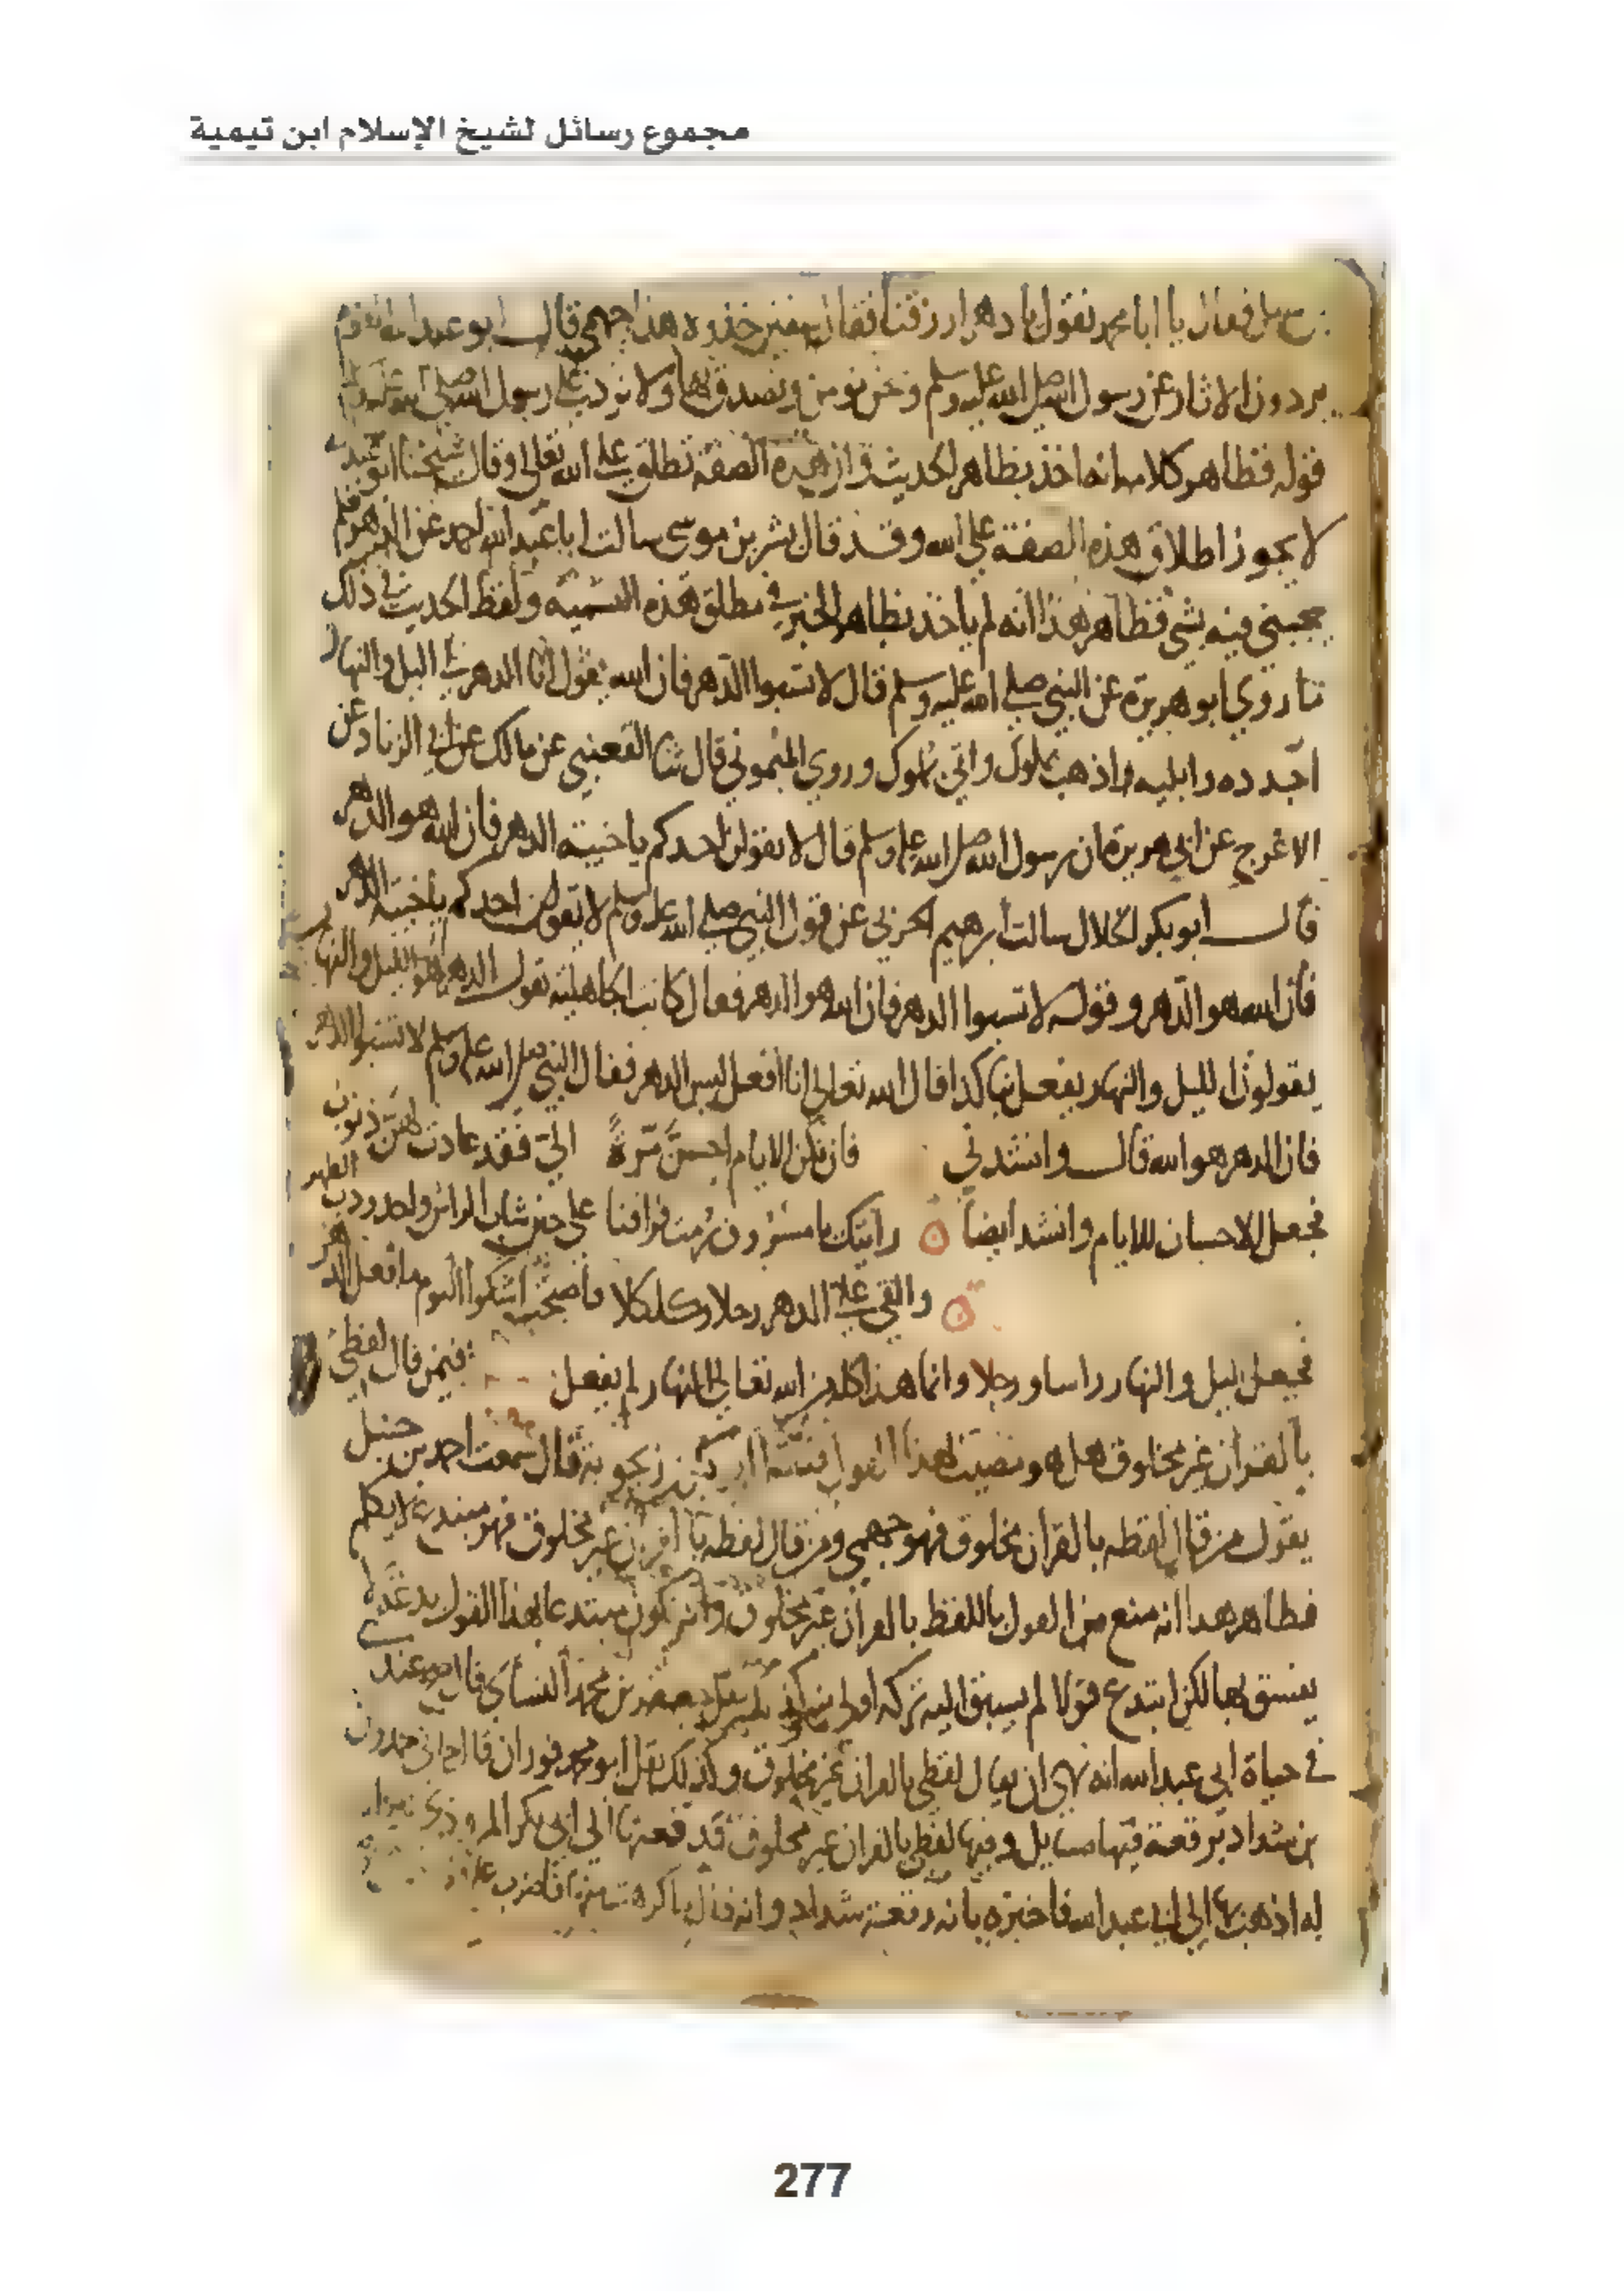 مجموع رسائل لشيخ الإسلام ابن تيمية
فقال يا ابا محمد نقول يا دهر ارزقنا فقال خذوه هذا جهمي قال ابو عبد الله
يردون الاثار عن رسول الله صلى الله عليه وسلم ونحن نومن ونصدق بها ولا نرد على رسول الله صلى الله عليه وسلم
قوله فظاهر كلامه انه اخذ بظاهر الحديث وان هذه الصفة تطلق على الله تعالى وقال شيخنا ابو عبد
لا يجوز اطلاق هذه الصفة على الله وقد قال بشر بن موسى سالت ابا عبد الله احمد عن الدهر فلم
يجبني فيه بشي فظاهر هذا انه لم ياخذ بظاهر الخبر في مطلق هذه التسمية ولفظ الحديث في ذلك
روي ابو هريرة عن النبي صلى الله عليه وسلم قال لا تسبوا الدهر فان الله يقول انا الدهر لي الليل والنهار
اجدده وابليه واذهب بملوك واتي بملوك وروي الميموني قال ثنا القعنبي عن مالك عن ابي الزناد عن
الاعرج عن ابي هريرة ان رسول الله صلى الله عليه وسلم قال لا يقولن احدكم يا خيبة الدهر فان الله هو الدهر
قال ابو بكر الخلال سالت ابرهيم الحربي عن قول النبي صلى الله عليه وسلم لا يقولن احدكم يا خيبة الدهر
فان الله هو الدهر وقوله لا تسبوا الدهر فان الله هو الدهر فقال كانت الجاهلية تقول الدهر هو الليل والنهار
يقولون الليل والنهار يفعل بنا كذا فقال الله تعالى انا افعل ليس الدهر فقال النبي صلى الله عليه وسلم لا تسبوا الدهر
فان الدهر هو الله قال وانشدني فان تكن الايام احسن مرة الي فقد عادت لهن ذنوب
فجعل الاحسان للايام وانشد ايضا رايتك يا مسرور رمت فراقنا على حين شاب الراس واحدودب الظهر
والقى على الدهر رجلا وكلكلا فاصبحت اشكوا اليوم ما فعل الدهر
فجعل لليل والنهار راسا ورجلا وانما هذا كله من الله تعالى النهار لم يفعل فيمن قال لفظي
بالقران غير مخلوق هل هو مصيب لهذا القول زنجويه قال سمعت احمد بن حنبل
يقول من قال لفظه بالقران مخلوق فهو جهمي ومن قال لفظه بالقران غير مخلوق فهو مبتدع لا يكلم
فظاهر هذا انه منع من القول باللفظ بالقران غير مخلوق وانه يكون مبتدعا بهذا القول بدعة
يفسق بها لكن ابتدع قولا لم يسبق اليه تركه اولى بن محمد النسائي عند
في حياة ابي عبد الله انه نهى ان يقال لفظي بالقران غير مخلوق وكذلك نقل ابو محمد فوران قال جاني
بن شداد برقعة فيها مسايل وفيها لفظي بالقران غير مخلوق فدفعتها الى ابي بكر المروذي
له اذهب بها الى ابي عبد الله فاخبره بانه رقعة شداد وانه قال ما كرهت منها فاضرب عليه
277